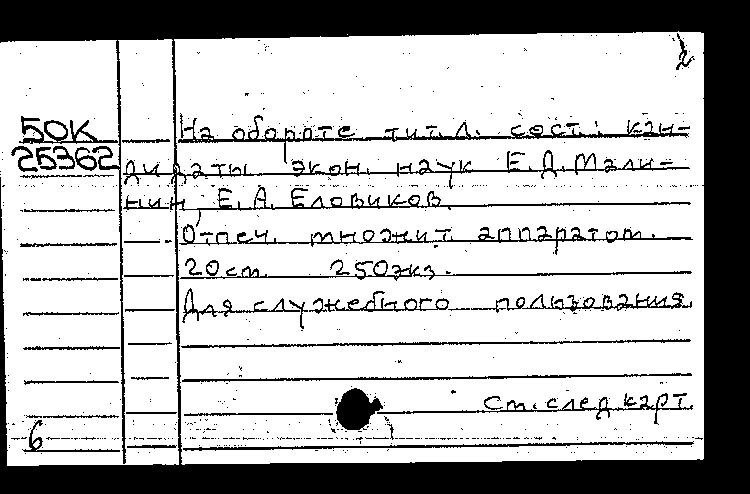 2
50К
25362
На обороте тит. л. сост.: кан-
дидаты экон. наук Е.Д. Мали-
нин, Е.А. Еловиков.
Отпеч. множит. аппаратом.
20 см. 250 экз.
Для служебного пользования.
См. след карт.
6